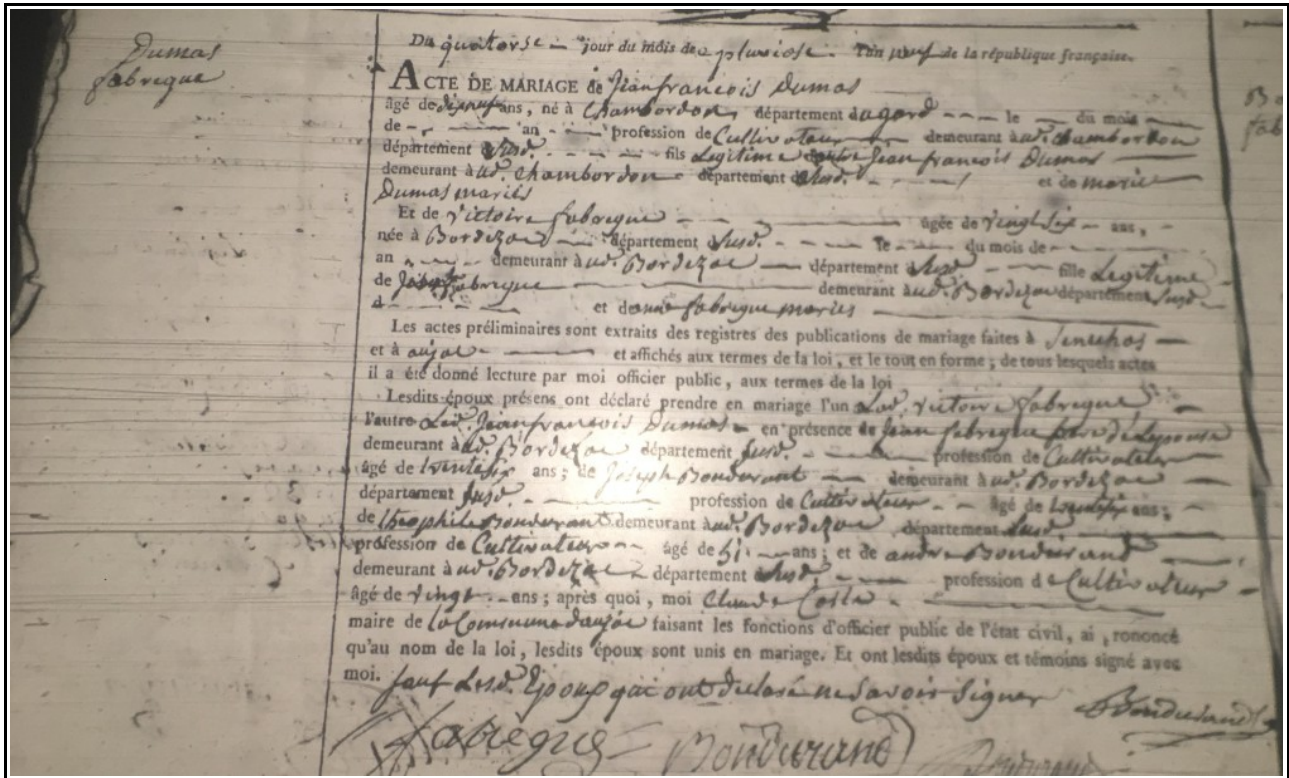 Dumas
fabregue
Du quatorse jour du mois de pluviose l'an neuf de la république française.
ACTE DE MARIAGE de Jeanfrancois Dumas
âgé de dixneuf ans, né à Chambordon, département dugard le du mois
de an profession de Cultivateur demeurant aud. chambordon
département Susd. fils Legitime Jeanfrancois Dumas
demeurant à ud. Chambordon département Susd. et de marie
Dumas mariés
Et de Victoire fabregue âgée de vingt six ans,
née à Bordezac département Susd. le du mois de
an demeurant à ud. Bordezac département Susd fille Legitime
de fabregue demeurant à ud. Bordezac département Susd
d et de fabregue mariés
Les actes préliminaires sont extraits des registres des publications de mariage faites à Senechas
et à aujac et affichés aux termes de la loi, et le tout en forme; de tous lesquels actes
il a été donné lecture par moi officier public, aux termes de la loi
Lesdits époux présens ont déclaré prendre en mariage l'un Lad. victoire fabregue
l'autre Led. Jeanfrancois Dumas en présence de Jean fabregue de Lepouse
demeurant à ud. Bordezac département Susd. profession de Cultivateur
âgé de ans; de Joseph Bondurant demeurant à ud. Bordezac
département Susd profession de Cultivateur âgé de ans;
de theophile Bondurant demeurant à ud. Bordezac département Susd
profession de Cultivateur âgé de 51 ans; et de andre Bondurand
demeurant à ud. Bordezac département Susd. profession de Cultivateur
âgé de vingt ans; après quoi, moi Claude Coste
maire de la Commune daujac faisant les fonctions d'officier public de l'état civil, ai , rononcé
qu'au nom de la loi, lesdits époux sont unis en mariage. Et ont lesdits époux et témoins signé avec
moi. Sauf Lesd. Epoux qui ont declaré ne Savoir Signer Bondurand
fabregue Bondurand